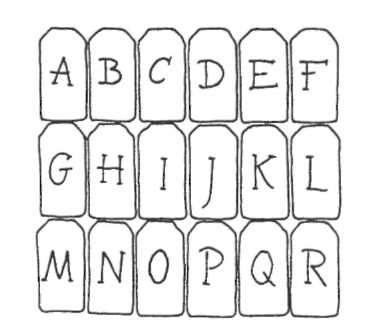 A B C D E F
G H I J K L
M N O P Q R